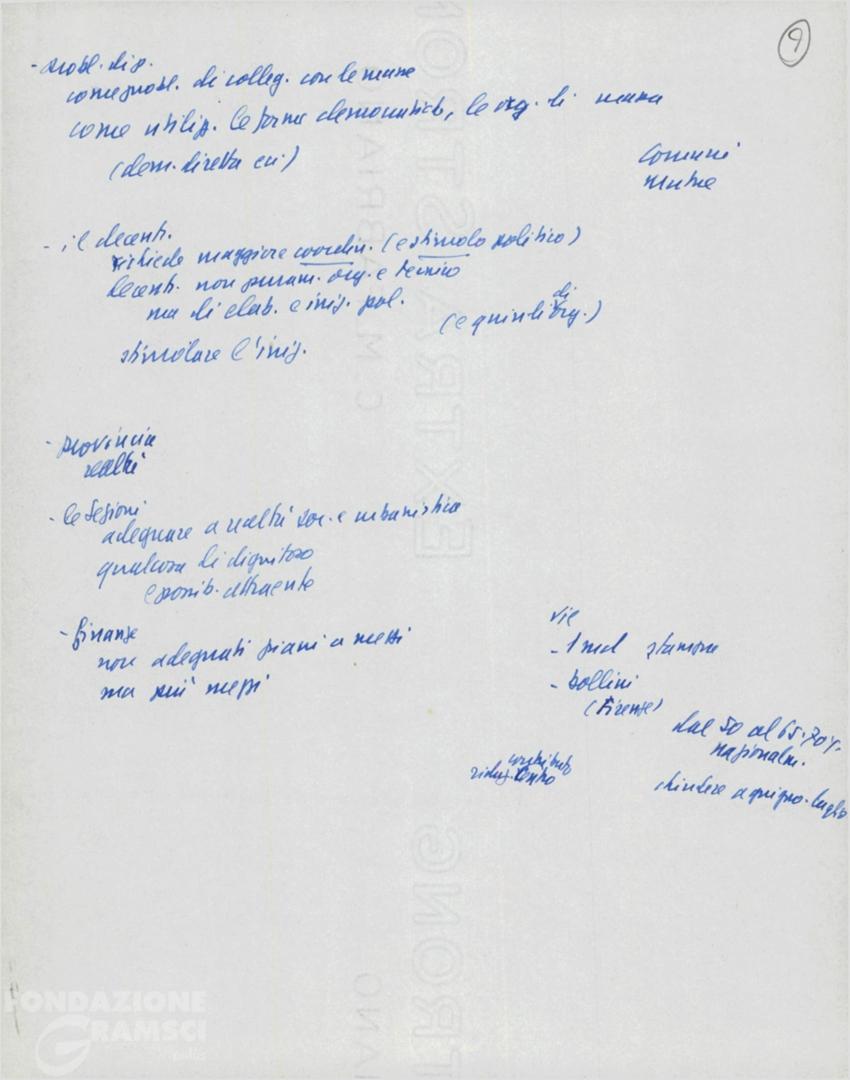 9
- probl. dip.
come probl. di colleg. con le masse
come utiliz. le forme democratich, le org. di massa
(dem. diretta ecc)
Comuni
- il decent.
richiede maggiore coordin. (e stimolo politico)
decent. non puram. org. e tecnico
ma di elab. e iniz. pol.
(e quindi di org.)
stimolare l'iniz.
- provincia
realtà
- le Sezioni
adeguare a realtà soc. e urbanistica
qualcosa di dignitoso
e possib. attraente
- finanze
non adeguati piani a mezzi
ma più mezzi
vie
- 1 mol stampa
- bollini
(Firenze)
dal 50 al 65-70%
nazionalm.
contributo
riduz. Centro
chiudere a giugno-luglio
FONDAZIONE
GRAMSCI
onlus
EXTRA STRONG
C. M. FABRIANO